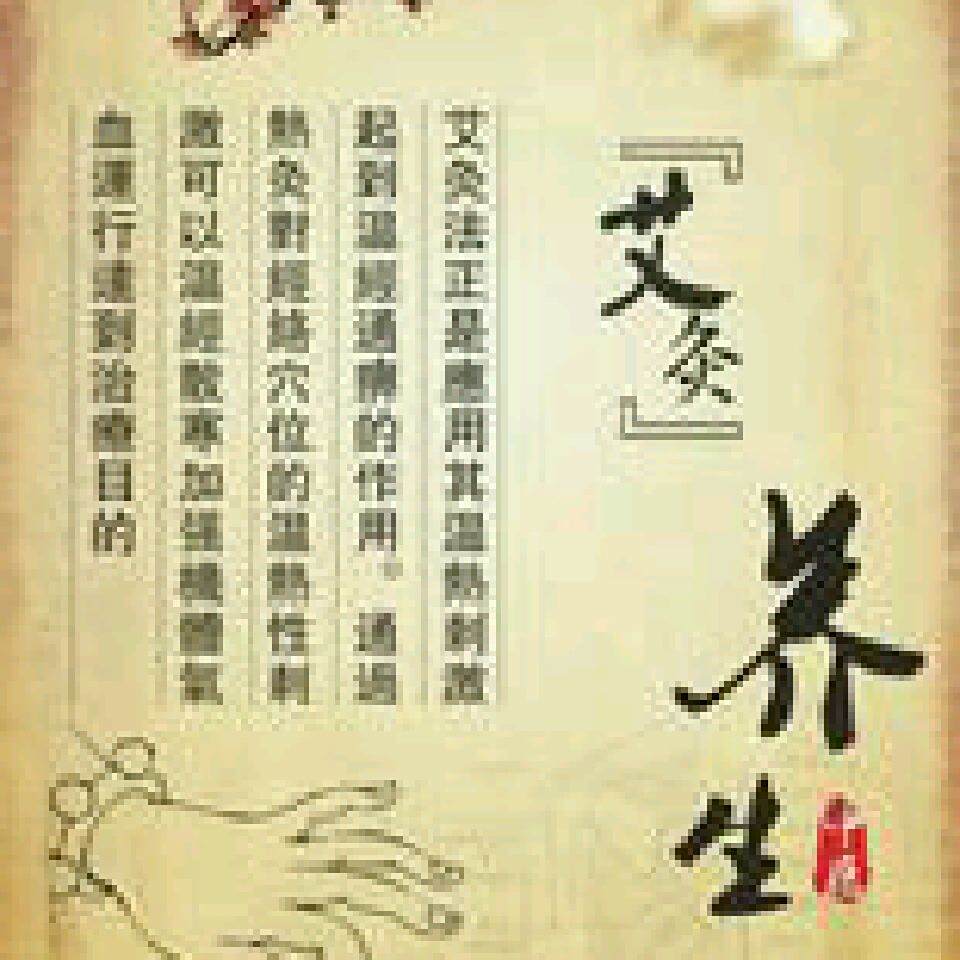 艾灸
养生
艾灸法正是應用其温熱刺激
起到温經通痹的作用。通過
熱灸對經絡穴位的温熱性刺
激可以温經散寒加强機體氣
血運行達到治療目的